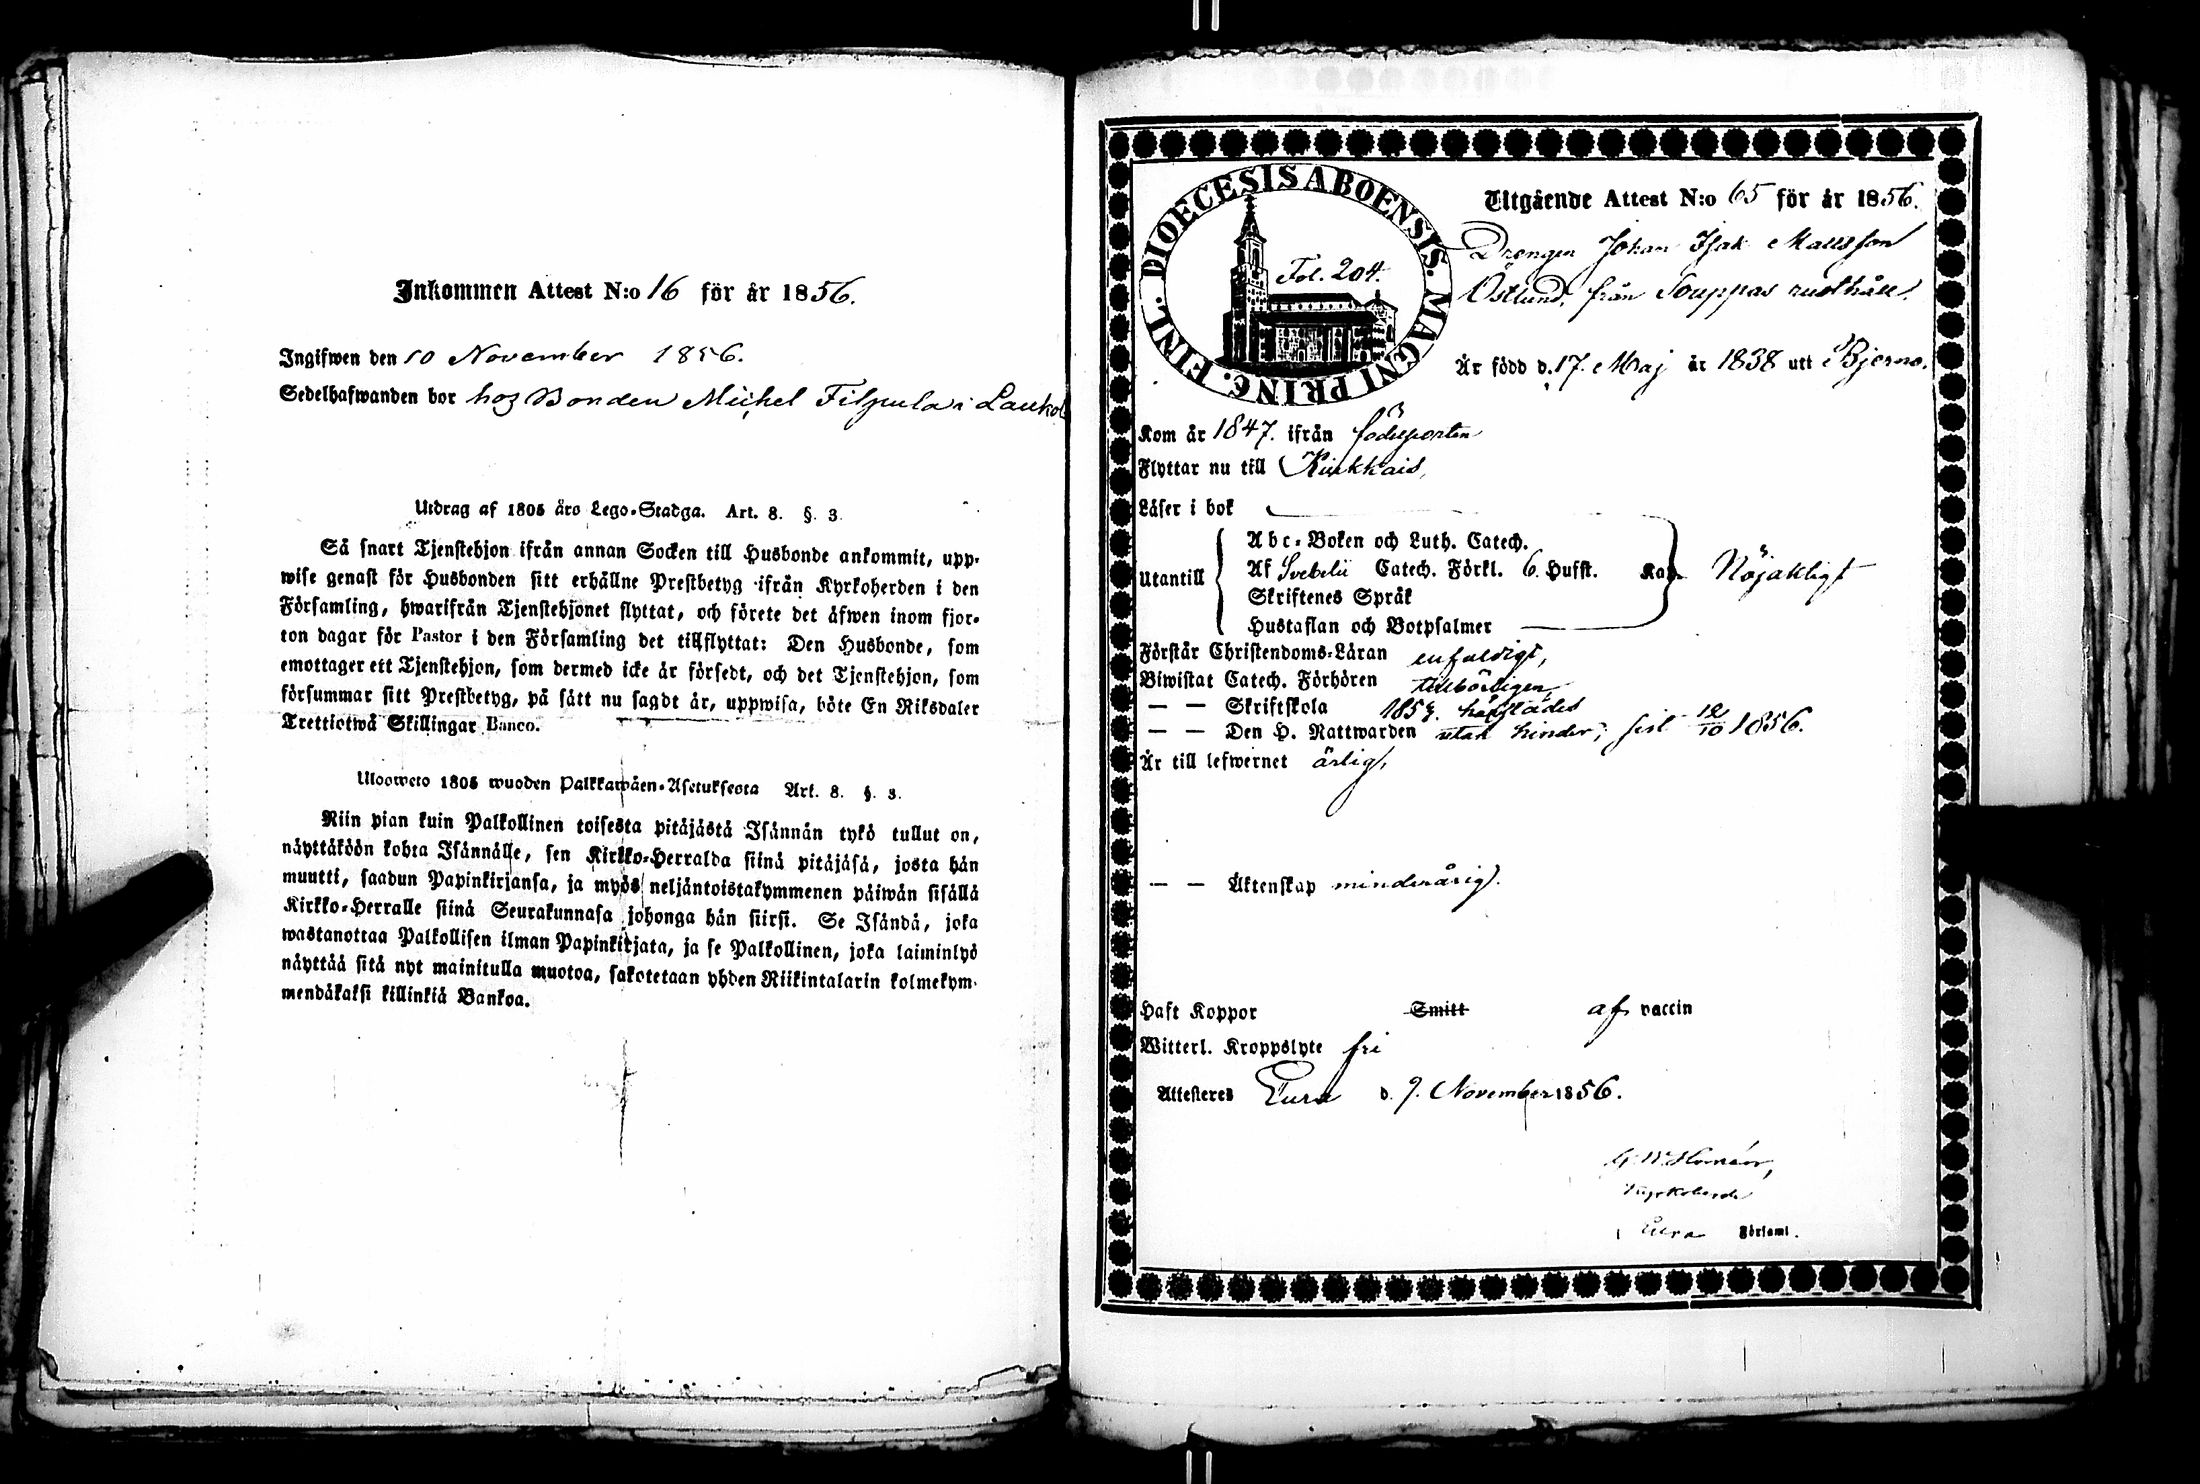 Inkommen Attest N:o 16 för år 1856.
Ingifwen den 10 November 1856.
Sedelhafwanden bor hos Bonden Michel Filpula i Laukol
Utdrag af 1805 års Lego-Stadga. Art. 8. §. 3.
Så snart Tjenstehjon ifrån annan Socken till Husbonde ankommit, upp-
wise genast för Husbonden sitt erhållne Prestbetyg ifrån Kyrkoherden i den
Församling, hwarifrån Tjenstehjonet flyttat, och förete det äfwen inom fjor-
ton dagar för Pastor i den Församling det tillflyttat: Den Husbonde, som
emottager ett Tjenstehjon, som dermed icke är försedt, och det Tjenstehjon, som
försummar sitt Prestbetyg, på sätt nu sagdt är, uppwisa, böte En Riksdaler
Trettiotwå Skillingar Banco.
Ulosweto 1805 wuoden Palkkawäen-Asetuksesta Art. 8. §. 3.
Niin pian kuin Palkollinen toisesta pitäjästä Isännän tykö tullut on,
näyttäköön kohta Isännälle, sen Kirkko-Herralda siinä pitäjäsä, josta hän
muutti, saadun Papinkirjansa, ja myös neljäntoistakymmenen päiwän sisällä
Kirkko-Herralle siinä Seurakunnasa johonga hän siirsi. Se Isändä, joka
wastanottaa Palkollisen ilman Papinkirjata, ja se Palkollinen, joka laiminlyö
näyttää sitä nyt mainitulla muotoa, sakotetaan yhden Riikintalarin kolmekym-
mendäkaksi killinkiä Bankoa.
DIOECESIS ABOENSIS. MAGNI PRINC. FINL.
Fol. 204.
Utgående Attest N:o 65 för år 1856.
Drengen Johan Isak Mattsson
Östlund, från Souppas rusthåll.
Är född d. 17. Maj år 1838 uti Bjerno.
Kom år 1847. ifrån födelseorten
Flyttar nu till Kiukkais,
Läser i bok
Utantill
Abc-Boken och Luth. Catech.
Af Svebelii Catech. Förkl. 6. Hufst. Kap.
Skriftenes Språk
Hustaflan och Botpsalmer
Nöjaktligt
Förstår Christendoms-Läran enfaldigt,
Biwistat Catech. Förhören tillbörligen,
— — Skriftskola
— — Den H. Nattwarden utan hinder, sist 12/10 1856.
Är till lefwernet ärlig,
— — Äktenskap minderårig.
Haft Koppor Smitt af vaccin
Witterl. Kroppslyte fri
Attesteres Eura d. 9. November 1856.
Kyrkoherde
Eura Församl.